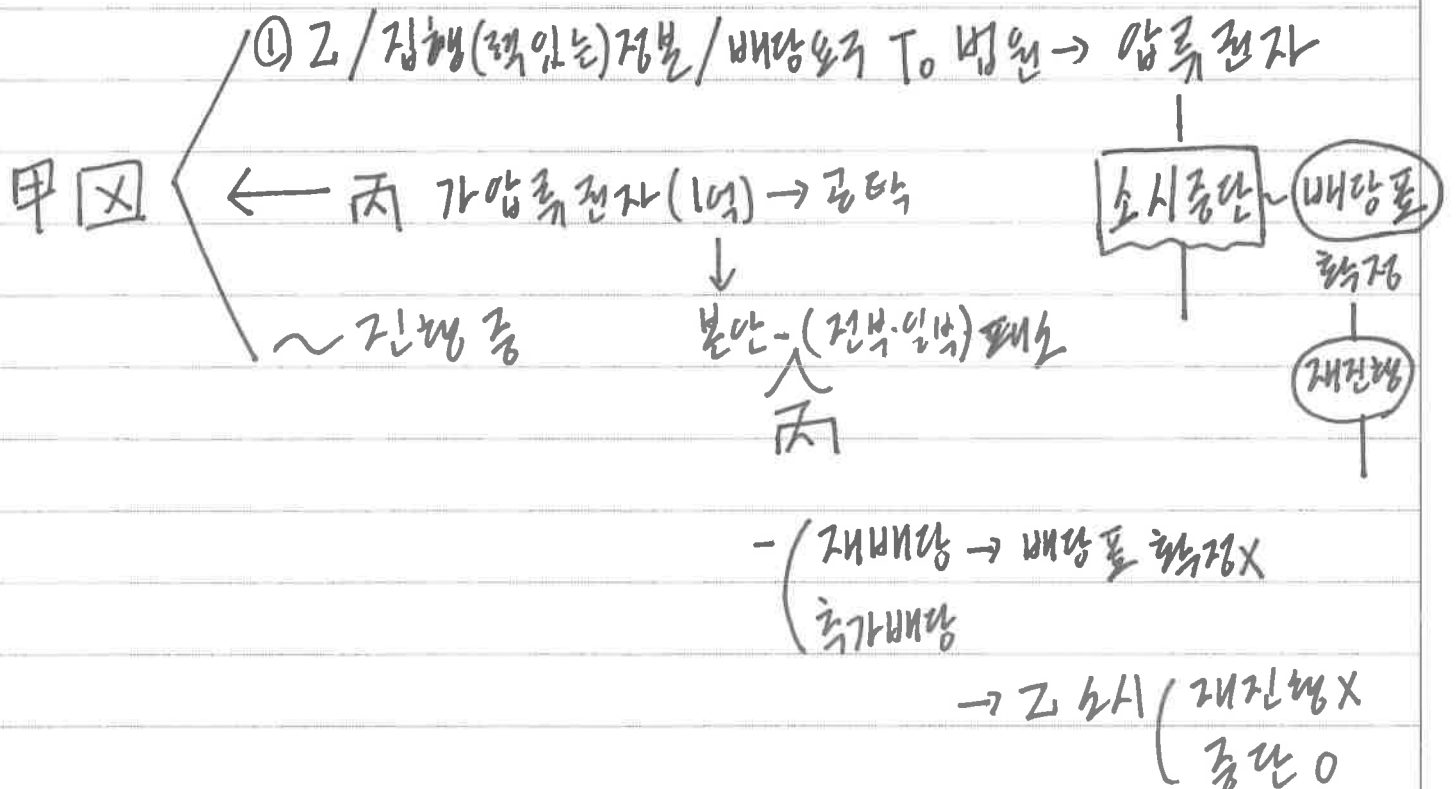 ① 乙 / 집행(력있는)정본 / 배당요구 To 법원 → 압류권자
甲 X ← 丙 가압류권자(1억) → 공탁
소시중단 ~ 배당표
확정
~ 진행 중
본안 - (전부·일부) 패소
재진행
丙
- ( 재배당 → 배당표 확정X
추가배당
→ 乙 소시 ( 재진행X
중단 O